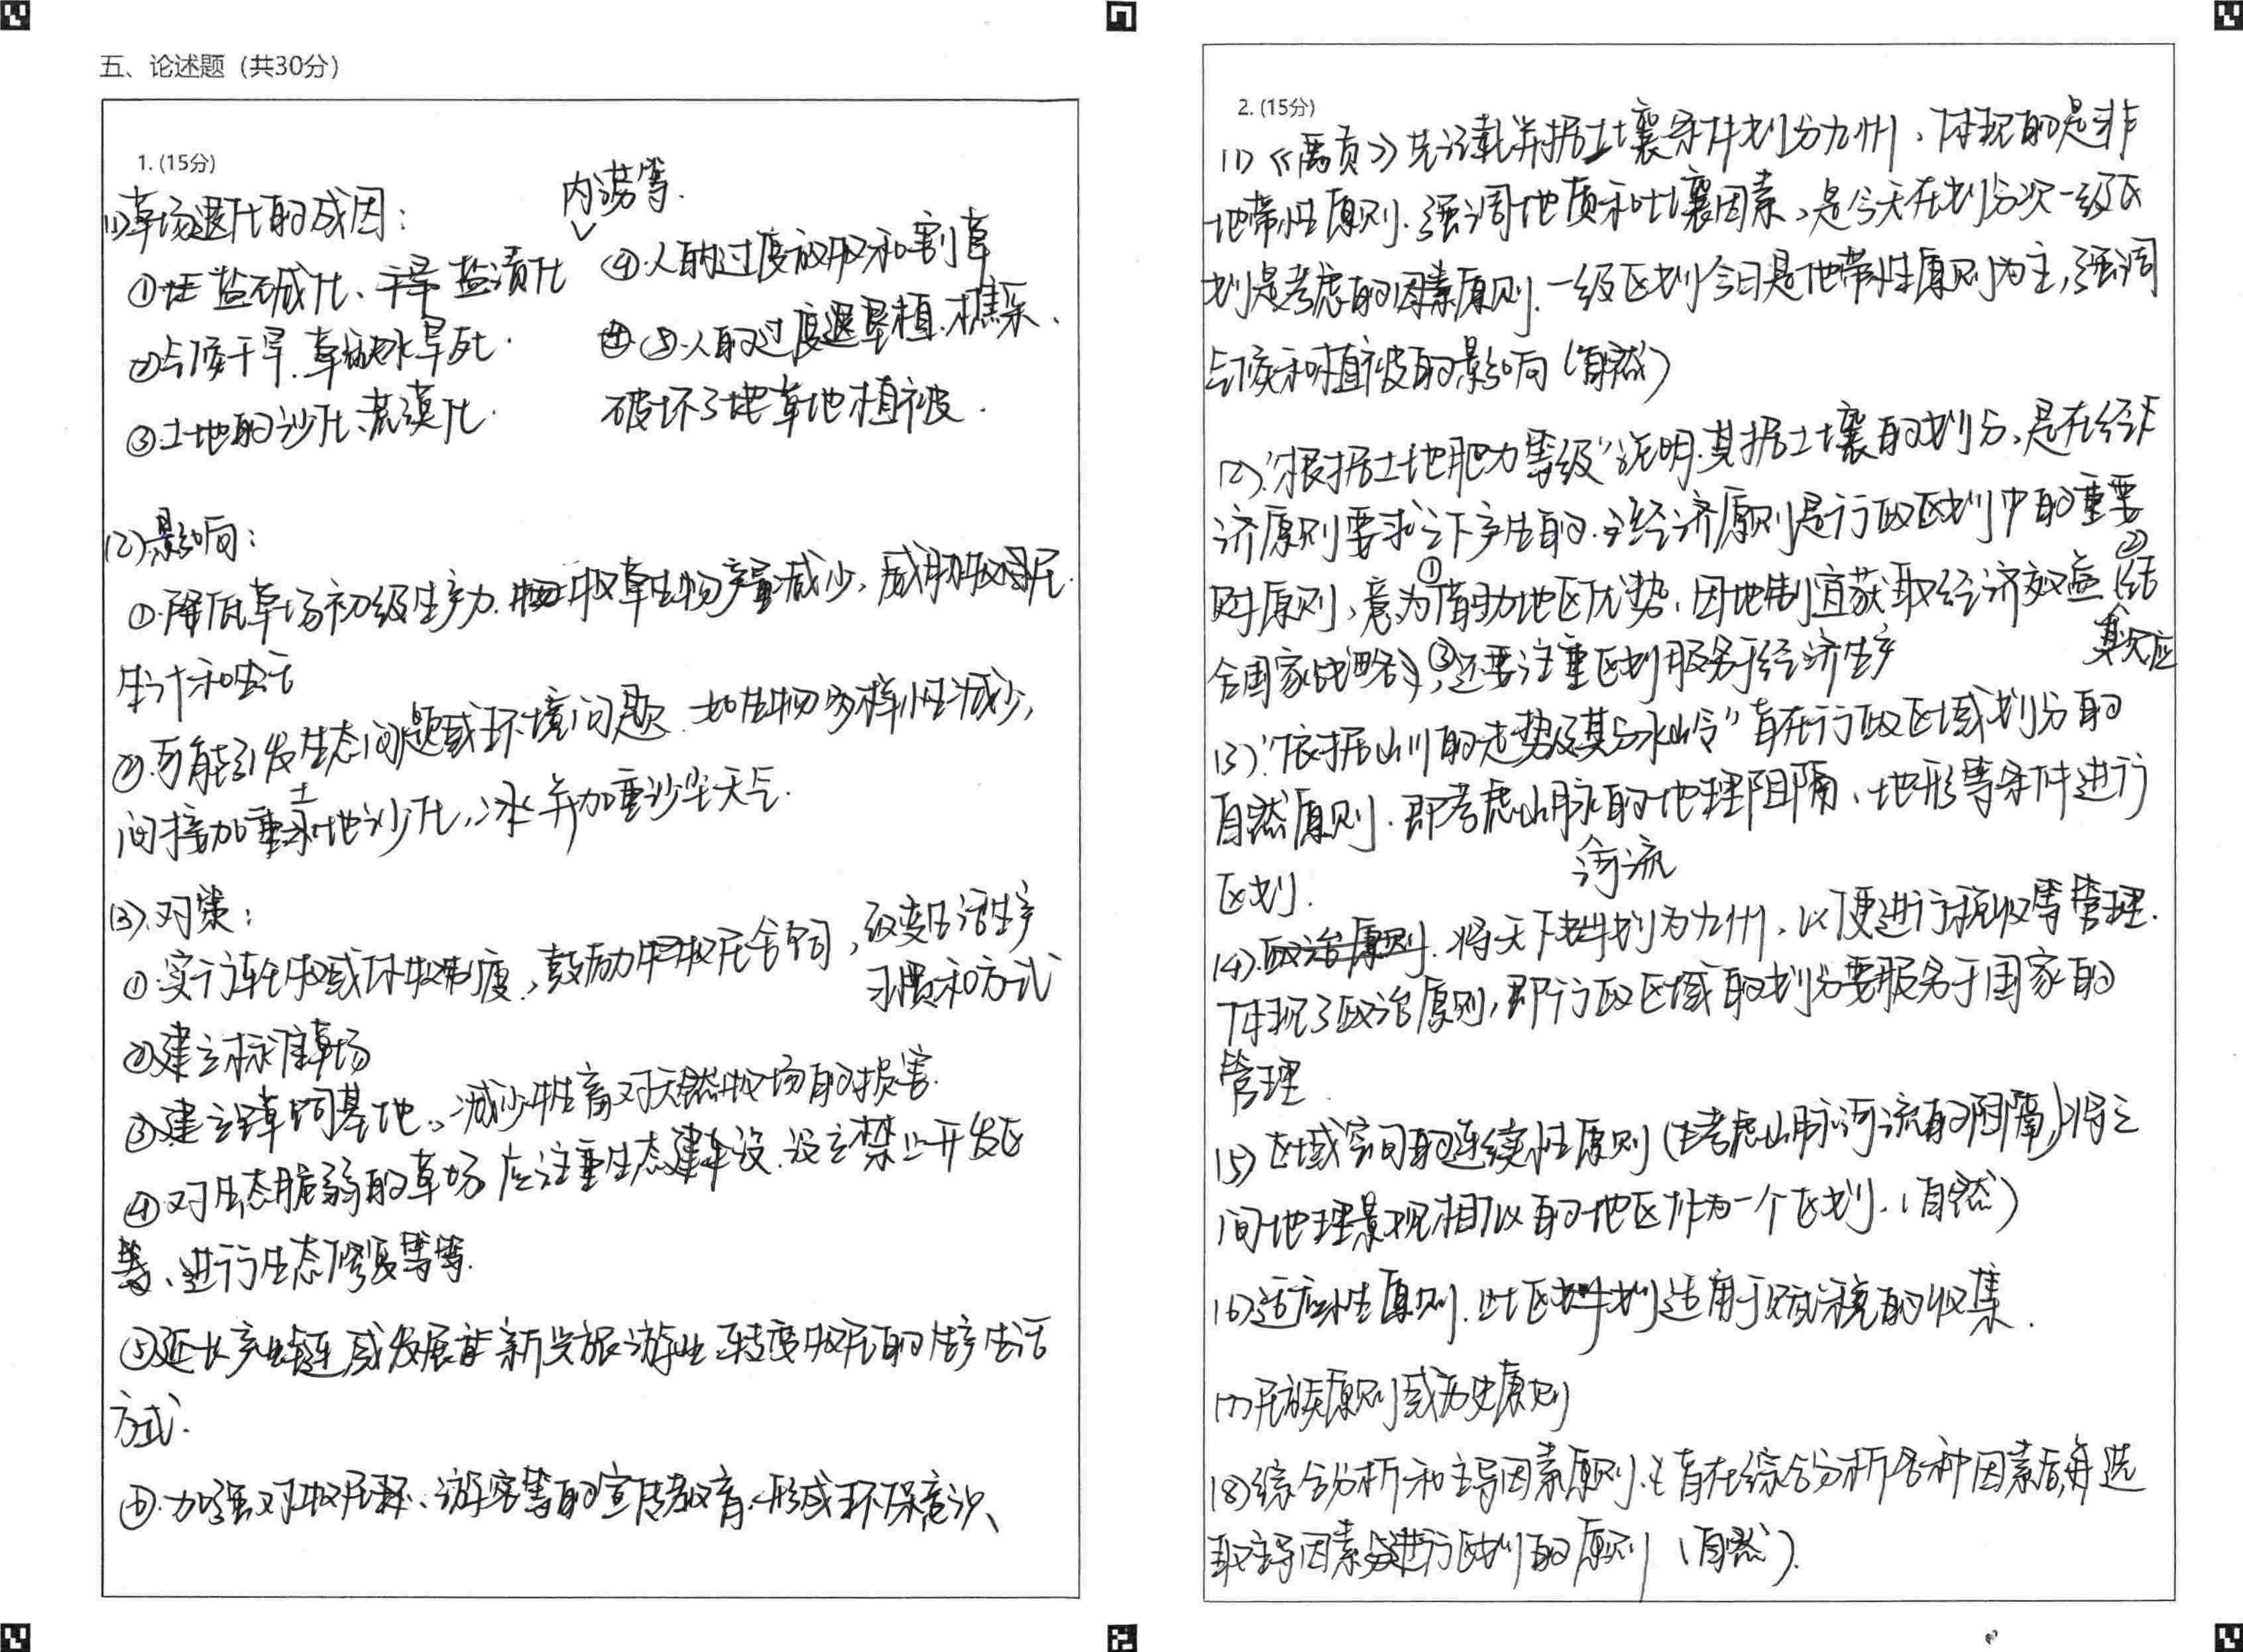 五、论述题（共30分）
1. (15分)
(1)草场退化的成因：
内涝等.
①土 盐碱化、干旱 盐渍化
②气候干旱.草缺水旱死.
③土地的沙化、荒漠化.
④.人的过度放牧和割草
⑤.人的过度垦植.樵采、
破坏了地草地植被.
(2).影响：
①.降低草场初级生产力.牧草生物产量减少,威胁牧民
生计和生活
②.可能引发生态问题或环境问题.如生物多样性减少,
间接加重土地沙化,并加重沙尘天气.
(3).对策：
①.实行轮牧或休牧制度,鼓励牧民舍饲,改变生活生产
习惯和方式
②建立标准草场
③建立草饲基地.减少牲畜对天然牧场的损害.
④.对生态脆弱的草场应注重生态建设.设立禁止开发区
等、进行生态修复等等.
⑤延长产业链或发展新兴旅游业.转变牧民的生产生活
方式.
⑥.加强对牧民、游客等的宣传教育.形成环保意识、
2. (15分)
(1)《禹贡》先记载并据土壤条件划分九州,体现的是非
地带性原则.强调地质和土壤因素,是今天在划分次一级区
划是考虑的因素原则.一级区划今日是地带性原则为主,强调
气候和植被的影响(自然)
(2).“根据土地肥力等级”说明.其据土壤的划分,是在经
济原则要求之下产生的.经济原则是行政区划中的重要
原则,意为①借助地区优势,因地制宜获取经济效益②结
合国家战略,③还要注重区划服务于经济生产
其效应
(3).“依据山川的走势及其分水岭”指在行政区域划分的
自然原则.即考虑山脉的地理阻隔、地形等条件进行
河流
区划.
(4).政治原则.将天下划为九州,以便进行税收等管理.
体现了政治原则,即行政区域的划分要服务于国家的
管理.
(5)区域空间的连续性原则(在考虑山脉河流的阻隔)将之
间地理景观相似的地区作为一个区划.(自然)
(6)适应性原则.此区划适用于赋税的收集.
(7)民族原则或历史原则
(8)综合分析和主导因素原则.指在综合分析各种因素后,并选
取主导因素进行区划的原则(自然).